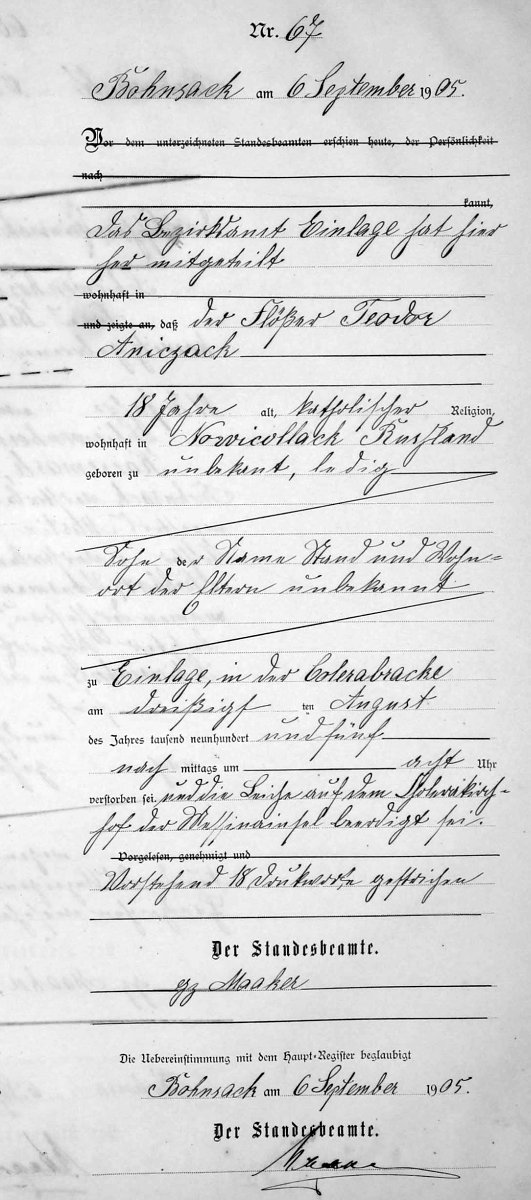 Nr. 67
Bohnsack am 6 September 1905.
Vor dem unterzeichneten Standesbeamten erschien heute, der Persönlichkeit
nach
kannt,
Das Bezirksamt Einlage hat hier
her mitgeteilt
wohnhaft in
und zeigte an, daß der Flößer Teodor
Aniczack
18 Jahre alt, katholischer Religion,
wohnhaft in Nowicollack Rußland
geboren zu unbekant, ledig
Sohn der Name Stand und Wohn-
ort der Eltern unbekannt
zu Einlage, in der Colerabracke
am dreißigst ten August
des Jahres tausend neunhundert und fünf
nach mittags um acht Uhr
verstorben sei und die Leiche auf dem Cholerakirch-
hof der Messinainsel beerdigt sei.
Vorgelesen, genehmigt und
Vorstehend 18 Druckworte gestrichen
Der Standesbeamte.
gz Maaker
Die Uebereinstimmung mit dem Haupt-Register beglaubigt
Bohnsack am 6 September 1905.
Der Standesbeamte.